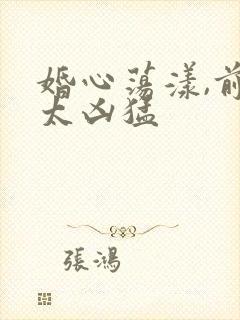 婚心蕩漾,前
太凶猛
張鴻